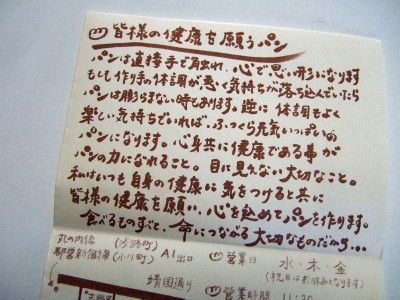 皆様の健康を願うパン
パンは直接手で触れ、心で思い形になります
もしも作り手の体調が悪く気持ちが落ち込んでいたら
パンは膨らまない時もあります。逆に体調もよく
楽しい気持ちでいれば、ふっくら元気いっぱいの
パンになります。心身共に健康である事が
パンの力になれること。目に見えない大切なこと。
私はいつも自身の健康に気をつけると共に
皆様の健康を願い、心を込めてパンを作ります。
食べるものすごと、命につながる大切なものだから…
丸の内線(淡路町)
都営新宿線(小川町) A1出口
営業日 水・木・金
(祝日はお休みとなります)
靖国通り
営業時間 11:30